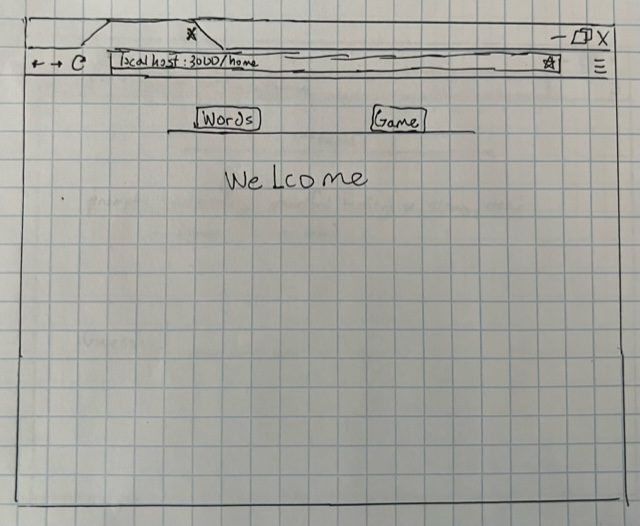 localhost:3000/home
Words Game
Welcome